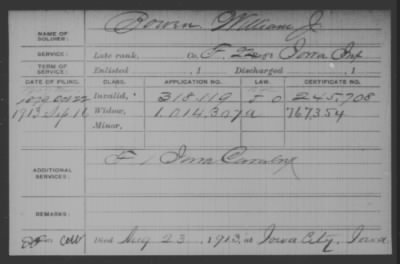 NAME OF SOLDIER: Bowen William J.
SERVICE: Late rank, Co. F, Reg't Iowa Inf
TERM OF SERVICE: Enlisted , 1 Discharged , 1
DATE OF FILING. CLASS. APPLICATION NO. LAW. CERTIFICATE NO.
1879 Oct 22 Invalid, 318.119 245.908
1913 Sep 11 Widow, 1.014.307 767354
Minor,
ADDITIONAL SERVICES: F 1 Iowa Cavalry
REMARKS:
Died Aug 23, 1913, at Iowa City, Iowa